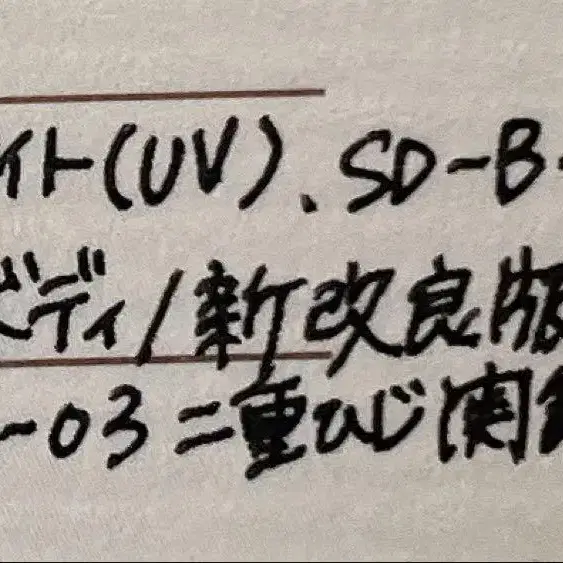 イト(UV)、SD-B-
ボディ/新改良版
-03 二重ひじ関節